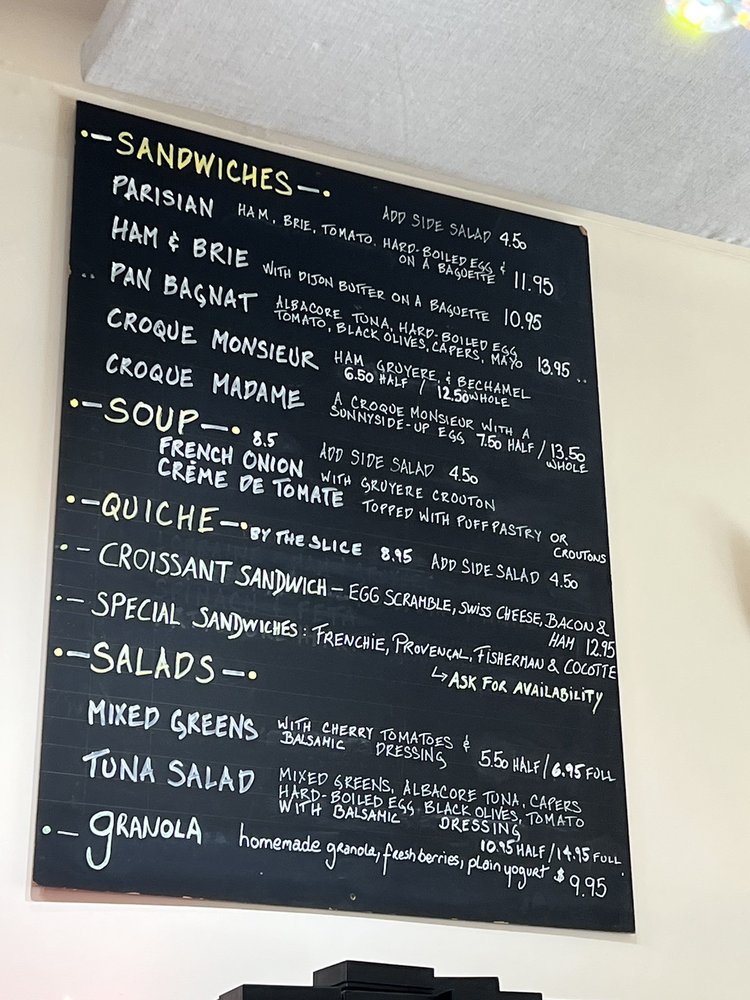 SANDWICHES
ADD SIDE SALAD 4.50
PARISIAN HAM, BRIE, TOMATO, HARD-BOILED EGG &
ON A BAGUETTE 11.95
HAM & BRIE WITH DIJON BUTTER ON A BAGUETTE 10.95
PAN BAGNAT ALBACORE TUNA, HARD-BOILED EGG
TOMATO, BLACK OLIVES, CAPERS, MAYO 13.95
CROQUE MONSIEUR HAM GRUYERE, & BECHAMEL
6.50 HALF / 12.50 WHOLE
CROQUE MADAME A CROQUE MONSIEUR WITH A
SUNNYSIDE-UP EGG 7.50 HALF / 13.50
WHOLE
SOUP 8.5 ADD SIDE SALAD 4.50
FRENCH ONION WITH GRUYERE CROUTON
CRÈME DE TOMATE TOPPED WITH PUFF PASTRY OR
CROUTONS
QUICHE BY THE SLICE 8.95 ADD SIDE SALAD 4.50
CROISSANT SANDWICH - EGG SCRAMBLE, SWISS CHEESE, BACON &
HAM 12.95
SPECIAL SANDWICHES: FRENCHIE, PROVENÇAL, FISHERMAN & COCOTTE
↳ ASK FOR AVAILABILITY
SALADS
MIXED GREENS WITH CHERRY TOMATOES &
BALSAMIC DRESSING 5.50 HALF / 6.95 FULL
TUNA SALAD MIXED GREENS, ALBACORE TUNA, CAPERS
HARD-BOILED EGG, BLACK OLIVES, TOMATO
WITH BALSAMIC DRESSING
10.95 HALF / 14.95 FULL
GRANOLA homemade granola, fresh berries, plain yogurt $9.95